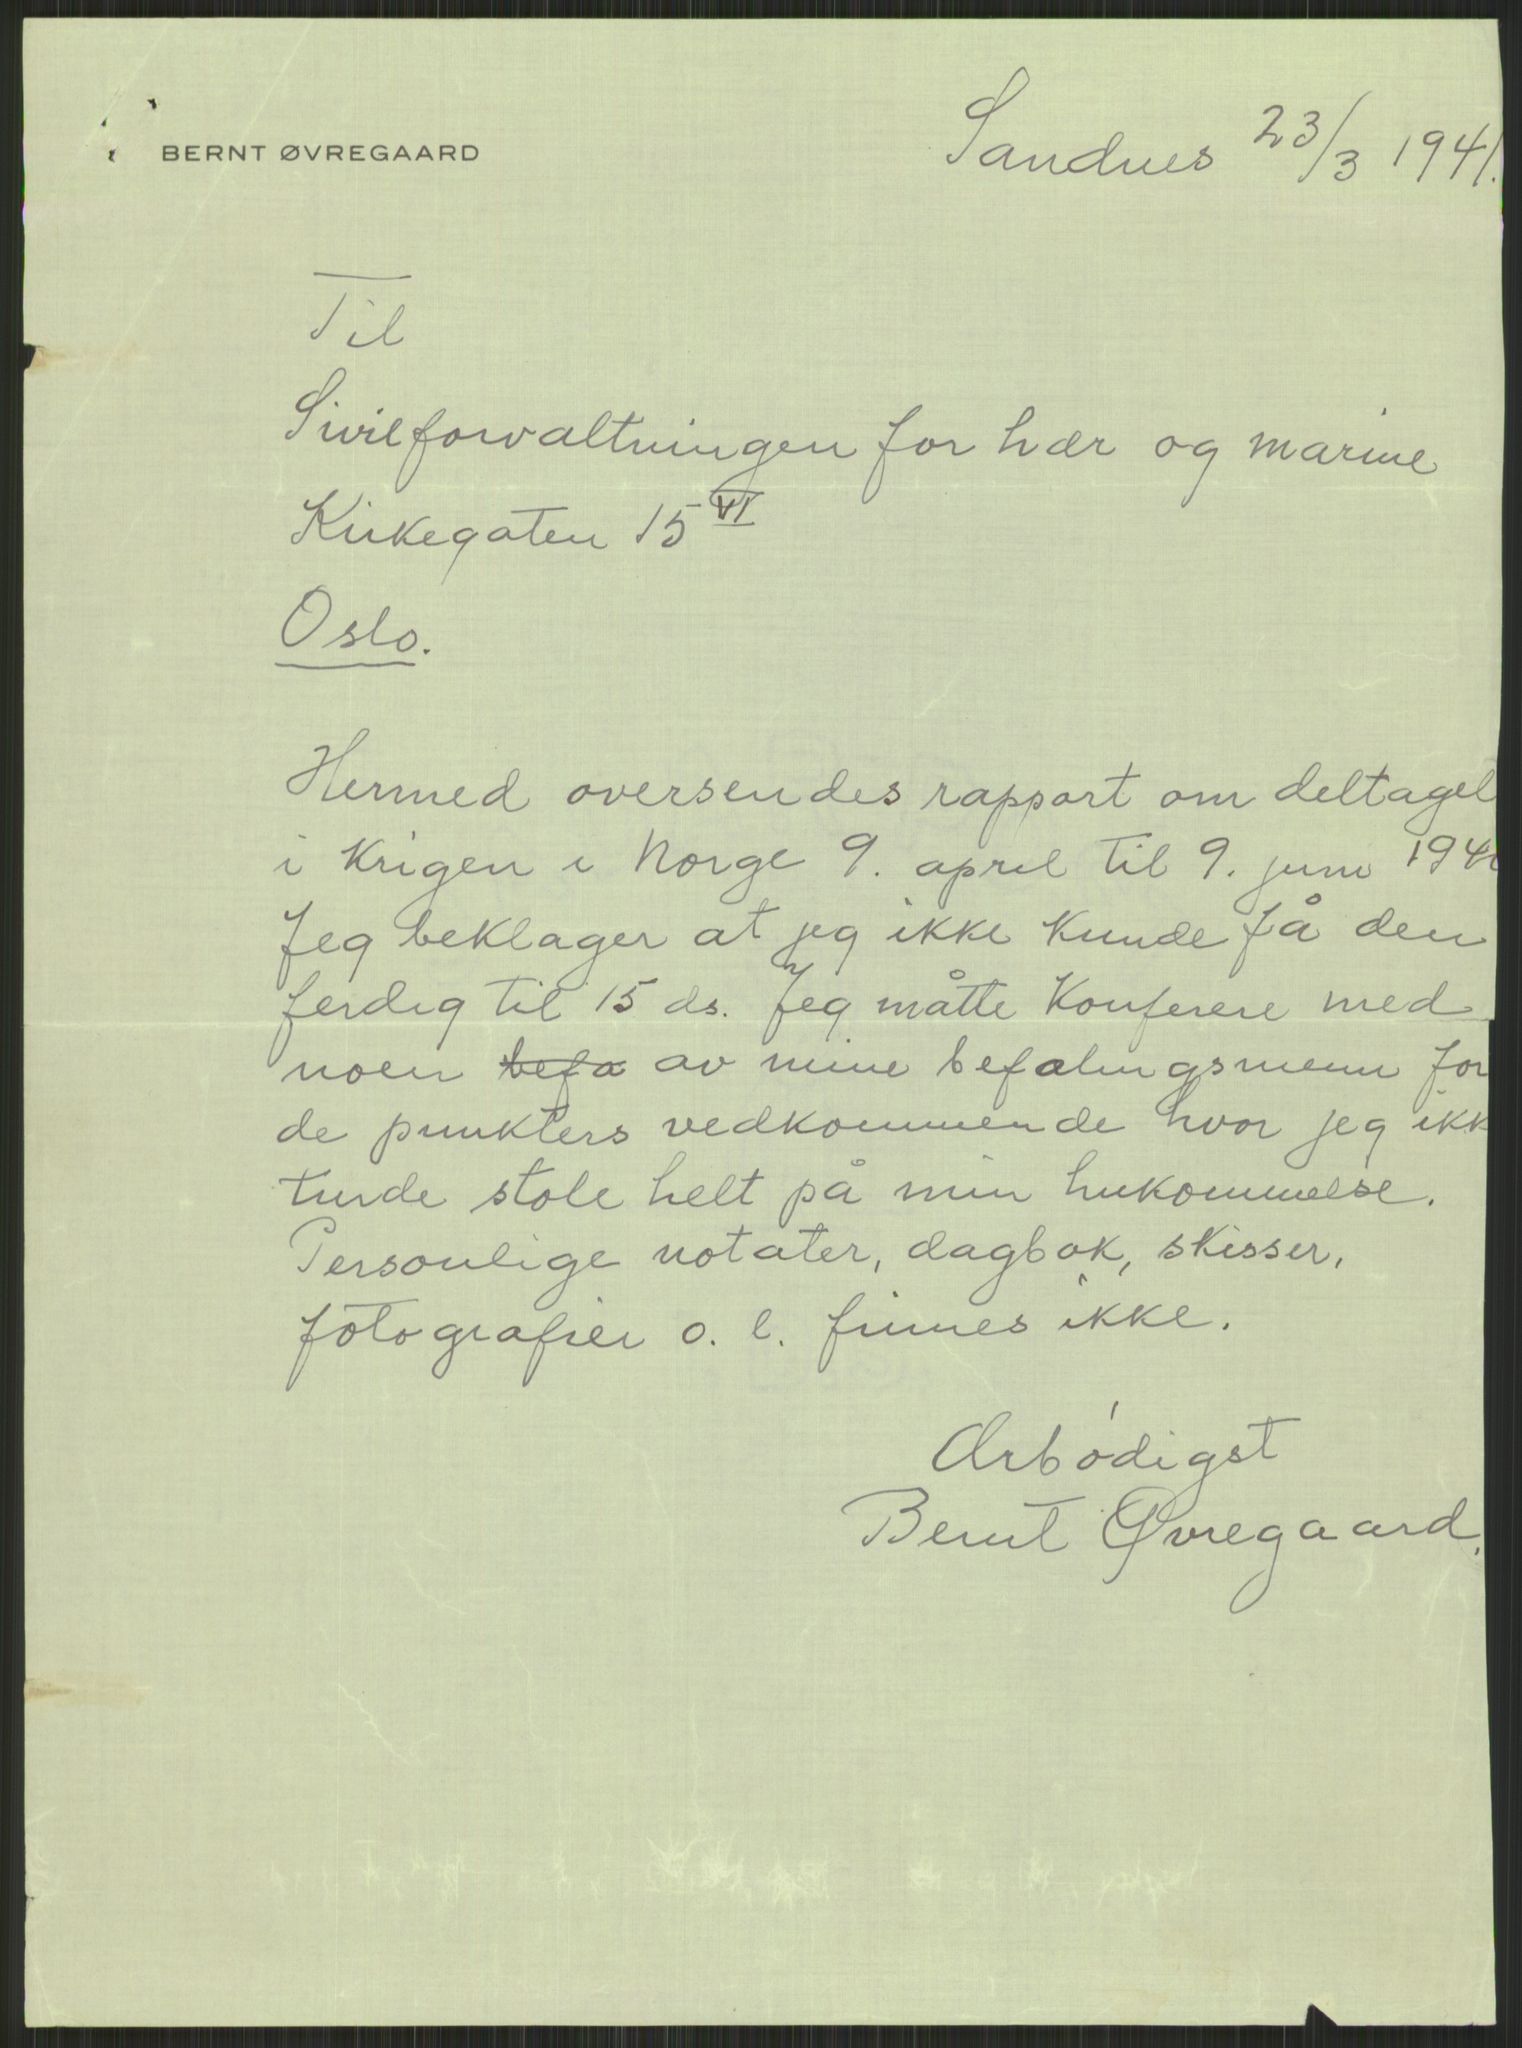 BERNT ØVREGAARD
Sandnes 23/3 1941.
Til
Sivilforvaltningen for hær og marine
Kirkegaten 15 VI
Oslo.
Hermed oversendes rapport om deltagel
i krigen i Norge 9. april til 9. juni 194
Jeg beklager at jeg ikke kunde få den
ferdig til 15 ds. Jeg måtte konferere med
noen befa av mine befalingsmenn for
de punkters vedkommende hvor jeg ikk
turde stole helt på min hukommelse.
Personlige notater, dagbok, skisser,
fotografier o. l. finnes ikke.
Ærbødigst
Bernt Øvregaard.